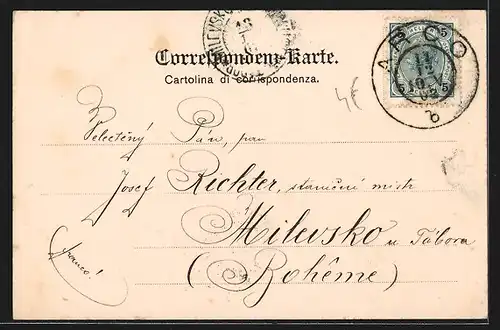 MILEVSKO
13
Correspondenz-Karte.
Cartolina di corrispondenza.
5 5
ARCO
11
b
4€
Velectěný Pán, pan
Josef Richter, staniční mistr
Milevsko u Tábora
(Bohême)
franco!